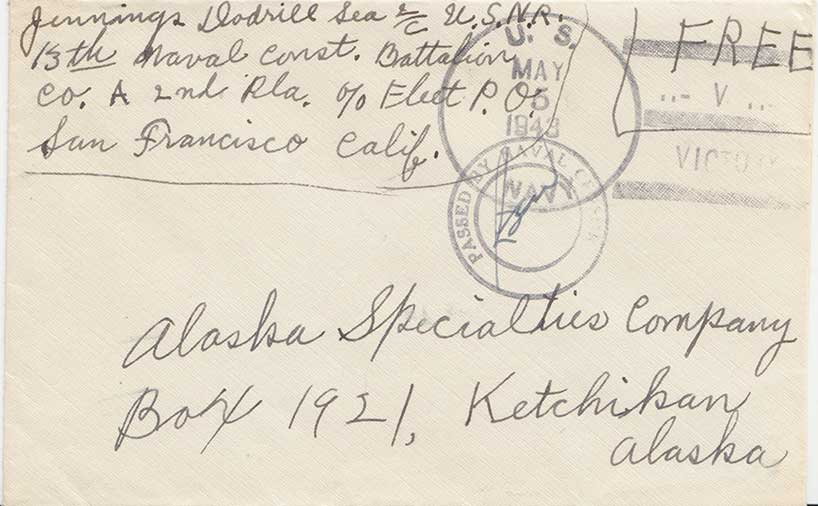 Jennings Dodrill Sea 2/c U.S.N.R.
13th Naval Const. Battalion
Co. A 2nd Pla. % Fleet P.O.
San Francisco Calif.
U. S.
MAY
5
1943
NAVY
PASSED BY NAVAL CENSOR
FREE
...- V ...-
VICTORY
Alaska Specialties Company
Box 1921, Ketchikan
Alaska